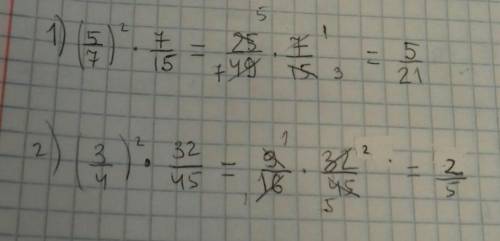 1) (5/7)² · 7/15 = 25/49 · 7/15 = 5/21
2) (3/4)² · 32/45 = 9/16 · 32/45 · = 2/5